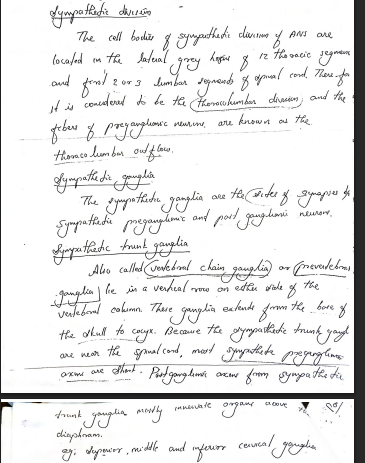 Sympathetic division
The cell bodies of sympathetic division of ANS are
located in the lateral grey horns of 12 thoracic segments
and first 2 or 3 lumbar segments of spinal cord. Therefore
it is considered to be the thoracolumbar division, and the
fibers of preganglionic neurons, are known as the
thoraco lumbar outflow.
Sympathetic ganglia
The sympathetic ganglia are the sides of synapses b/w
sympathetic preganglionic and post ganglionic neurons.
Sympathetic trunk ganglia
Also called vertebral chain ganglia or prevertebral
ganglia lie in a vertical row on either side of the
vertebral column. These ganglia extends from the base of
the skull to coxyx. Because the sympathetic trunk gangl
are near the spinal cord, most sympathetic preganglionic
axons are short. Postganglionic axons from sympathetic
trunk ganglia mostly innervate organs above
diaphram.
eg: superior, middle and inferior cervical ganglia